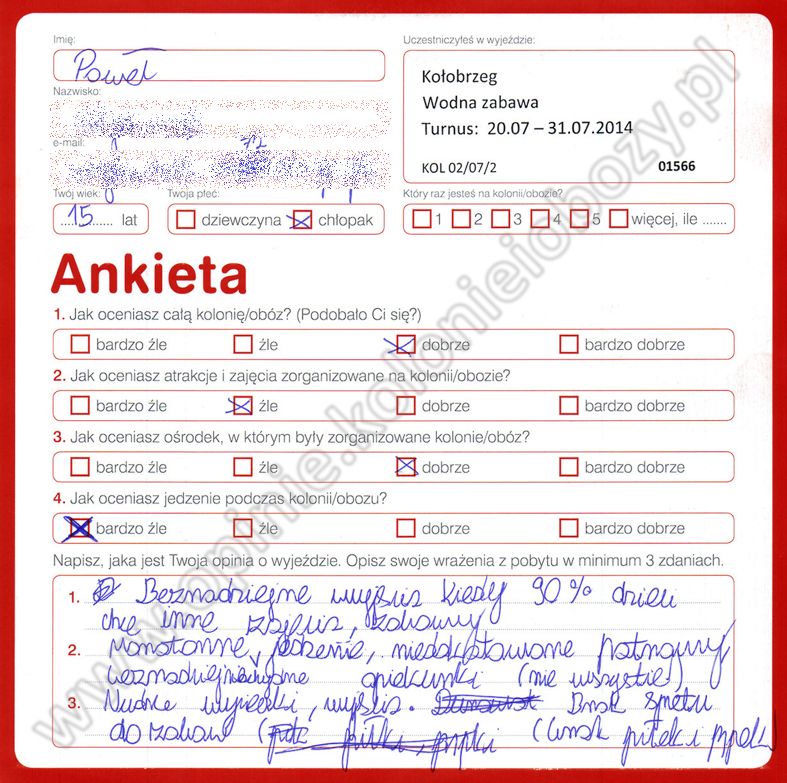 Imię:
Uczestniczyłeś w wyjeździe:
Paweł
Kołobrzeg
Wodna zabawa
Turnus: 20.07 – 31.07.2014
KOL 02/07/2 01566
Nazwisko:
e-mail:
Twój wiek: Twoja płeć: Który raz jesteś na kolonii/obozie?
15 lat dziewczyna chłopak 1 2 3 4 5 więcej, ile .......
Ankieta
1. Jak oceniasz całą kolonię/obóz? (Podobało Ci się?)
bardzo źle źle dobrze bardzo dobrze
2. Jak oceniasz atrakcje i zajęcia zorganizowane na kolonii/obozie?
bardzo źle źle dobrze bardzo dobrze
3. Jak oceniasz ośrodek, w którym były zorganizowane kolonie/obóz?
bardzo źle źle dobrze bardzo dobrze
4. Jak oceniasz jedzenie podczas kolonii/obozu?
bardzo źle źle dobrze bardzo dobrze
Napisz, jaka jest Twoja opinia o wyjeździe. Opisz swoje wrażenia z pobytu w minimum 3 zdaniach.
1. Beznadziejne wyjścia kiedy 90% dzieci
chce inne zajęcia, zabawy
2. Monotonne jedzenie, niedoprawione potrawy
beznadziejne opiekunki (nie wszystkie)
3. Nudne wycieczki, wyjścia. Brak sprzętu
do zabaw (brak piłek i
www.opinie.kolonieiobozy.pl